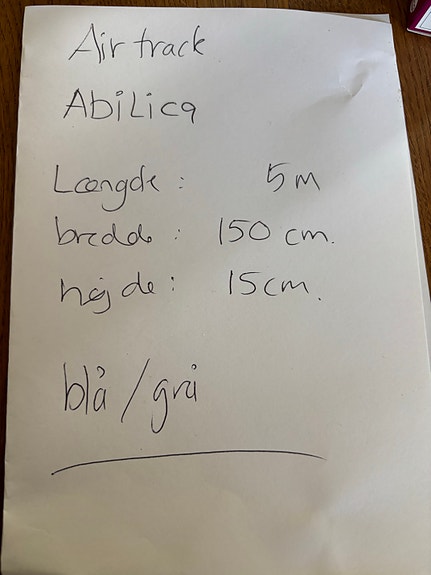 Air track
Abilica
Længde : 5 m
bredde : 150 cm.
højde : 15 cm.
blå / grå